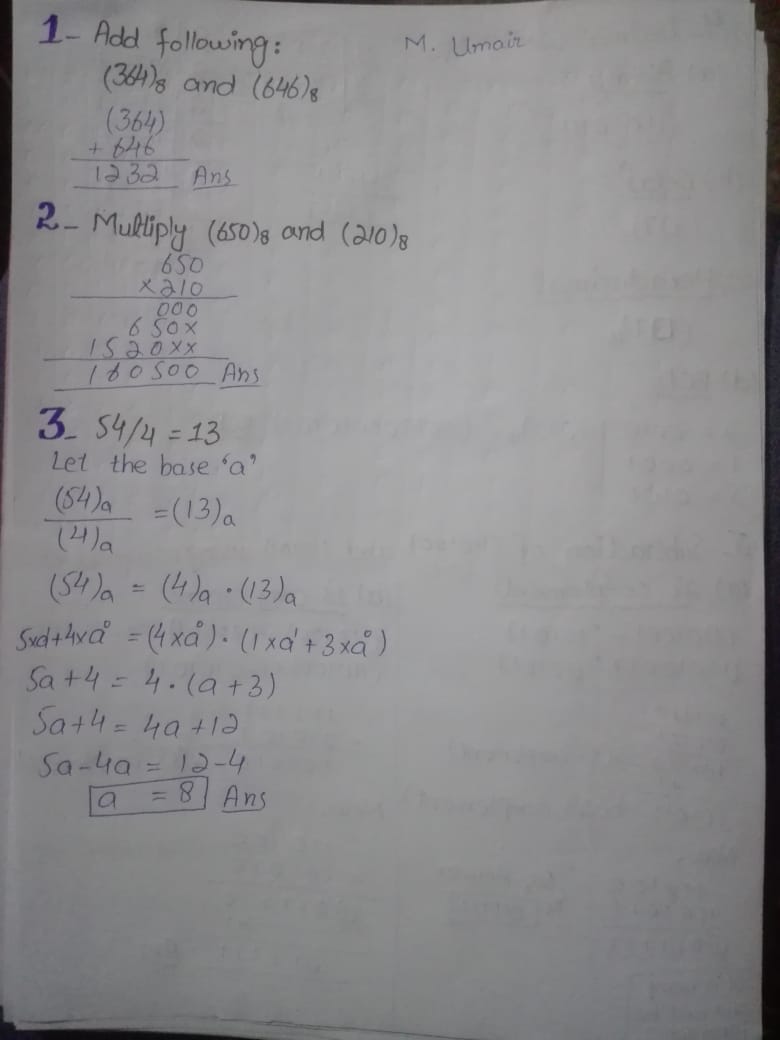 1- Add following: M. Umair
(364)₈ and (646)₈
(364)
+ 646
1232 Ans
2- Multiply (650)₈ and (210)₈
650
×210
000
650×
1520××
160500 Ans
3- 54/4 = 13
Let the base 'a'
(54)ₐ
= (13)ₐ
(4)ₐ
(54)ₐ = (4)ₐ · (13)ₐ
5×a'+4×a⁰ = (4×a⁰) · (1×a' + 3×a⁰)
5a+4 = 4 · (a+3)
5a+4 = 4a+12
5a-4a = 12-4
a = 8 Ans